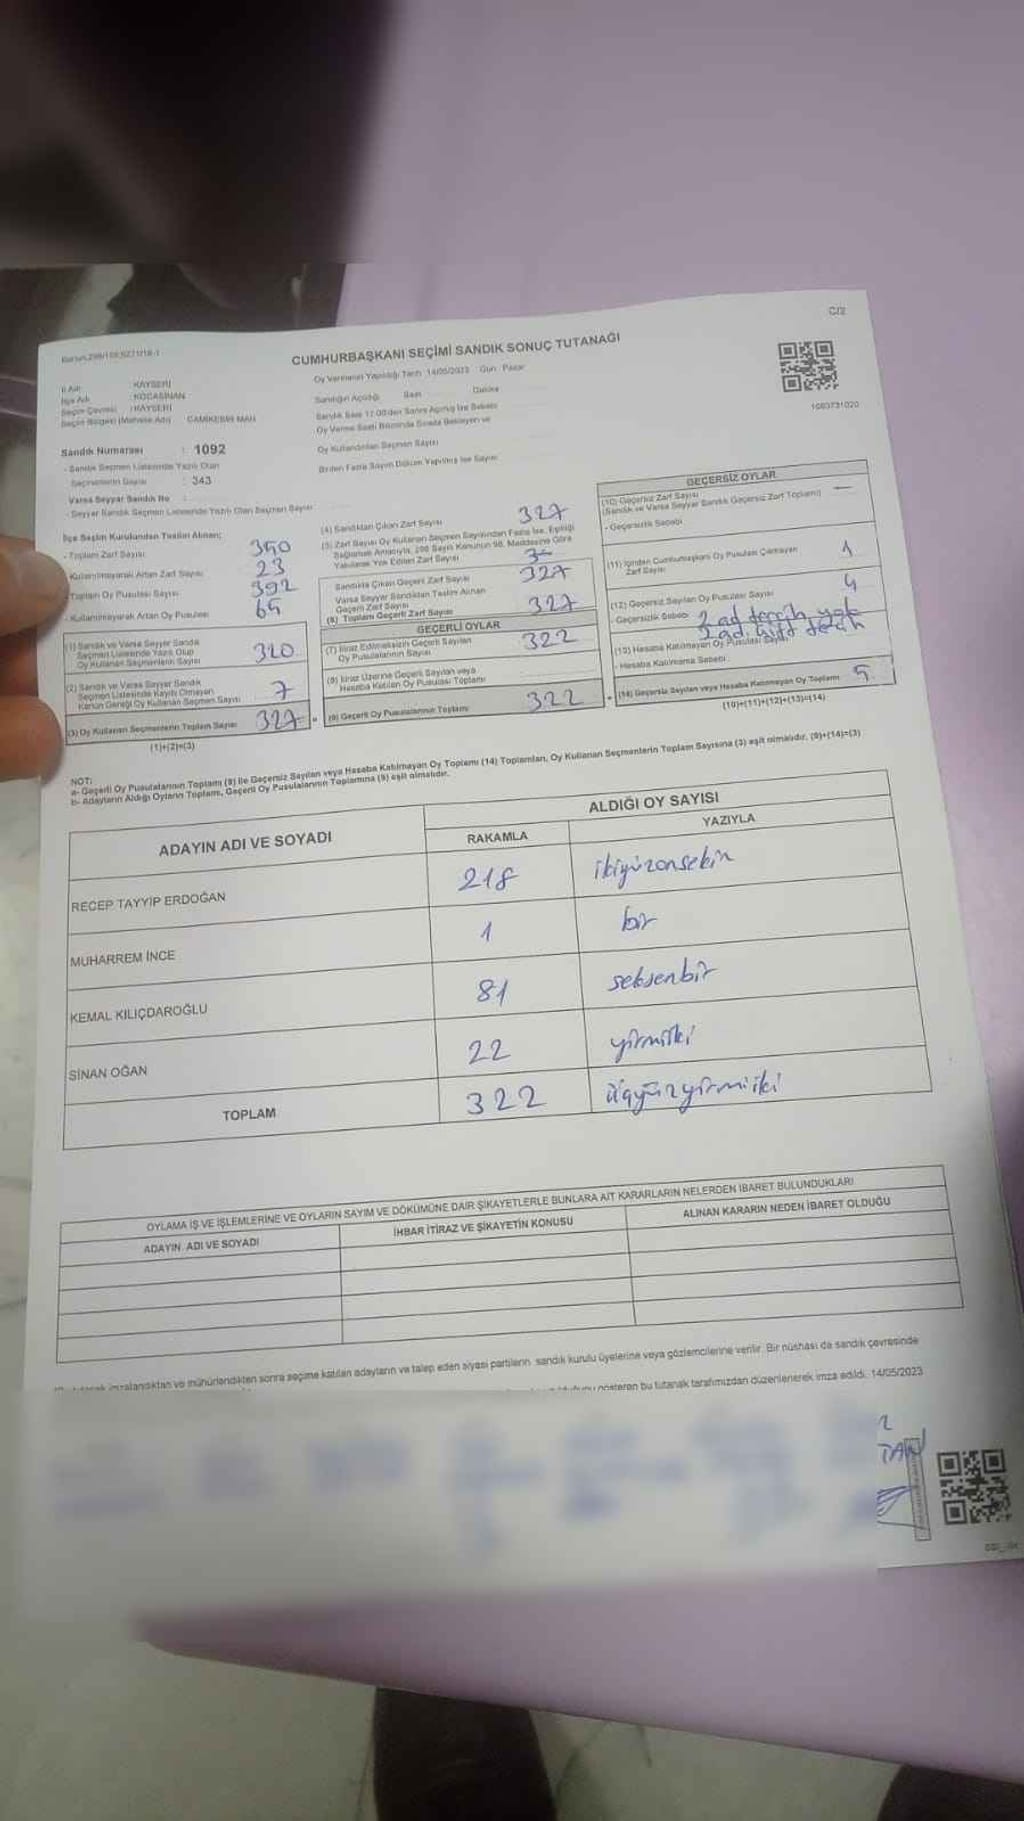 C/2
CUMHURBAŞKANI SEÇİMİ SANDIK SONUÇ TUTANAĞI
Oy Vermenin Yapıldığı Tarih 14/05/2023 Gün: Pazar
1083731020
İl Adı : KAYSERİ
İlçe Adı : KOCASİNAN
Seçim Çevresi : KAYSERİ
Seçim Bölgesi (Mahalle Adı) CAMİKEBİR MAH.
Sandığın Açıldığı Saat Dakika
Sandık Numarası : 1092
- Sandık Seçmen Listesinde Yazılı Olan
Seçmenlerin Sayısı : 343
Varsa Seyyar Sandık No :
- Seyyar Sandık Seçmen Listesinde Yazılı Olan Seçmen Sayısı
Oy Kullandırılan Seçmen Sayısı
Birden Fazla Sayım Döküm Yapılmış İse Sayısı
İlçe Seçim Kurulundan Teslim Alınan;
- Toplam Zarf Sayısı 350
- Kullanılmayarak Artan Zarf Sayısı 23
- Toplam Oy Pusulası Sayısı 392
- Kullanılmayarak Artan Oy Pusulası 65
(1) Sandık ve Varsa Seyyar Sandık
Seçmen Listesinde Yazılı Olup
Oy Kullanan Seçmenlerin Sayısı 320
(2) Sandık ve Varsa Seyyar Sandık
Seçmen Listesinde Kayıtlı Olmayan
Kanun Gereği Oy Kullanan Seçmen Sayısı 7
(3) Oy Kullanan Seçmenlerin Toplam Sayısı 327
(1)+(2)=(3)
(4) Sandıktan Çıkan Zarf Sayısı 327
(5) Zarf Sayısı Oy Kullanan Seçmen Sayısından Fazla İse, Eşitliği
Sağlamak Amacıyla, 298 Sayılı Kanunun 98. Maddesine Göre
Yakılarak Yok Edilen Zarf Sayısı
Sandıkta Çıkan Geçerli Zarf Sayısı 327
Varsa Seyyar Sandıktan Teslim Alınan
Geçerli Zarf Sayısı
(6) Toplam Geçerli Zarf Sayısı 327
GEÇERLİ OYLAR
(7) İtiraz Edilmeksizin Geçerli Sayılan
Oy Pusulalarının Sayısı 322
(8) İtiraz Üzerine Geçerli Sayılan veya
Hesaba Katılan Oy Pusulası Toplamı
(9) Geçerli Oy Pusulalarının Toplamı 322
GEÇERSİZ OYLAR
(10) Geçersiz Zarf Sayısı —
(Sandık ve Varsa Seyyar Sandık Geçersiz Zarf Toplamı)
- Geçersizlik Sebebi
(11) İçinden Cumhurbaşkanı Oy Pusulası Çıkmayan
Zarf Sayısı 1
(12) Geçersiz Sayılan Oy Pusulası Sayısı 4
- Geçersizlik Sebebi 2 ad tercih yok
2 ad.
(13) Hesaba Katılmayan Oy Pusulası Sayısı
- Hesaba Katılmama Sebebi
(14) Geçersiz Sayılan veya Hesaba Katılmayan Oy Toplamı 5
(10)+(11)+(12)+(13)=(14)
NOT:
a- Geçerli Oy Pusulalarının Toplamı (9) ile Geçersiz Sayılan veya Hesaba Katılmayan Oy Toplamı (14) Toplamları, Oy Kullanan Seçmenlerin Toplam Sayısına (3) eşit olmalıdır. (9)+(14)=(3)
b- Adayların Aldığı Oyların Toplamı, Geçerli Oy Pusulalarının Toplamına (9) eşit olmalıdır.
ADAYIN ADI VE SOYADI
ALDIĞI OY SAYISI
RAKAMLA YAZIYLA
RECEP TAYYİP ERDOĞAN 218 ikiyüzonsekin
MUHARREM İNCE 1 bir
KEMAL KILIÇDAROĞLU 81 seksenbir
SİNAN OĞAN 22 yirmiiki
TOPLAM 322 üçyüzyirmiiki
OYLAMA İŞ VE İŞLEMLERİNE VE OYLARIN SAYIM VE DÖKÜMÜNE DAİR ŞİKAYETLERLE BUNLARA AİT KARARLARIN NELERDEN İBARET BULUNDUKLARI
ADAYIN ADI VE SOYADI İHBAR İTİRAZ VE ŞİKAYETİN KONUSU ALINAN KARARIN NEDEN İBARET OLDUĞU
imzalandıktan ve mühürlendikten sonra seçime katılan adayların ve talep eden siyasi partilerin sandık kurulu üyelerine veya gözlemcilerine verilir. Bir nüshası da sandık çevresinde
gösteren bu tutanak tarafımızdan düzenlenerek imza edildi. 14/05/2023